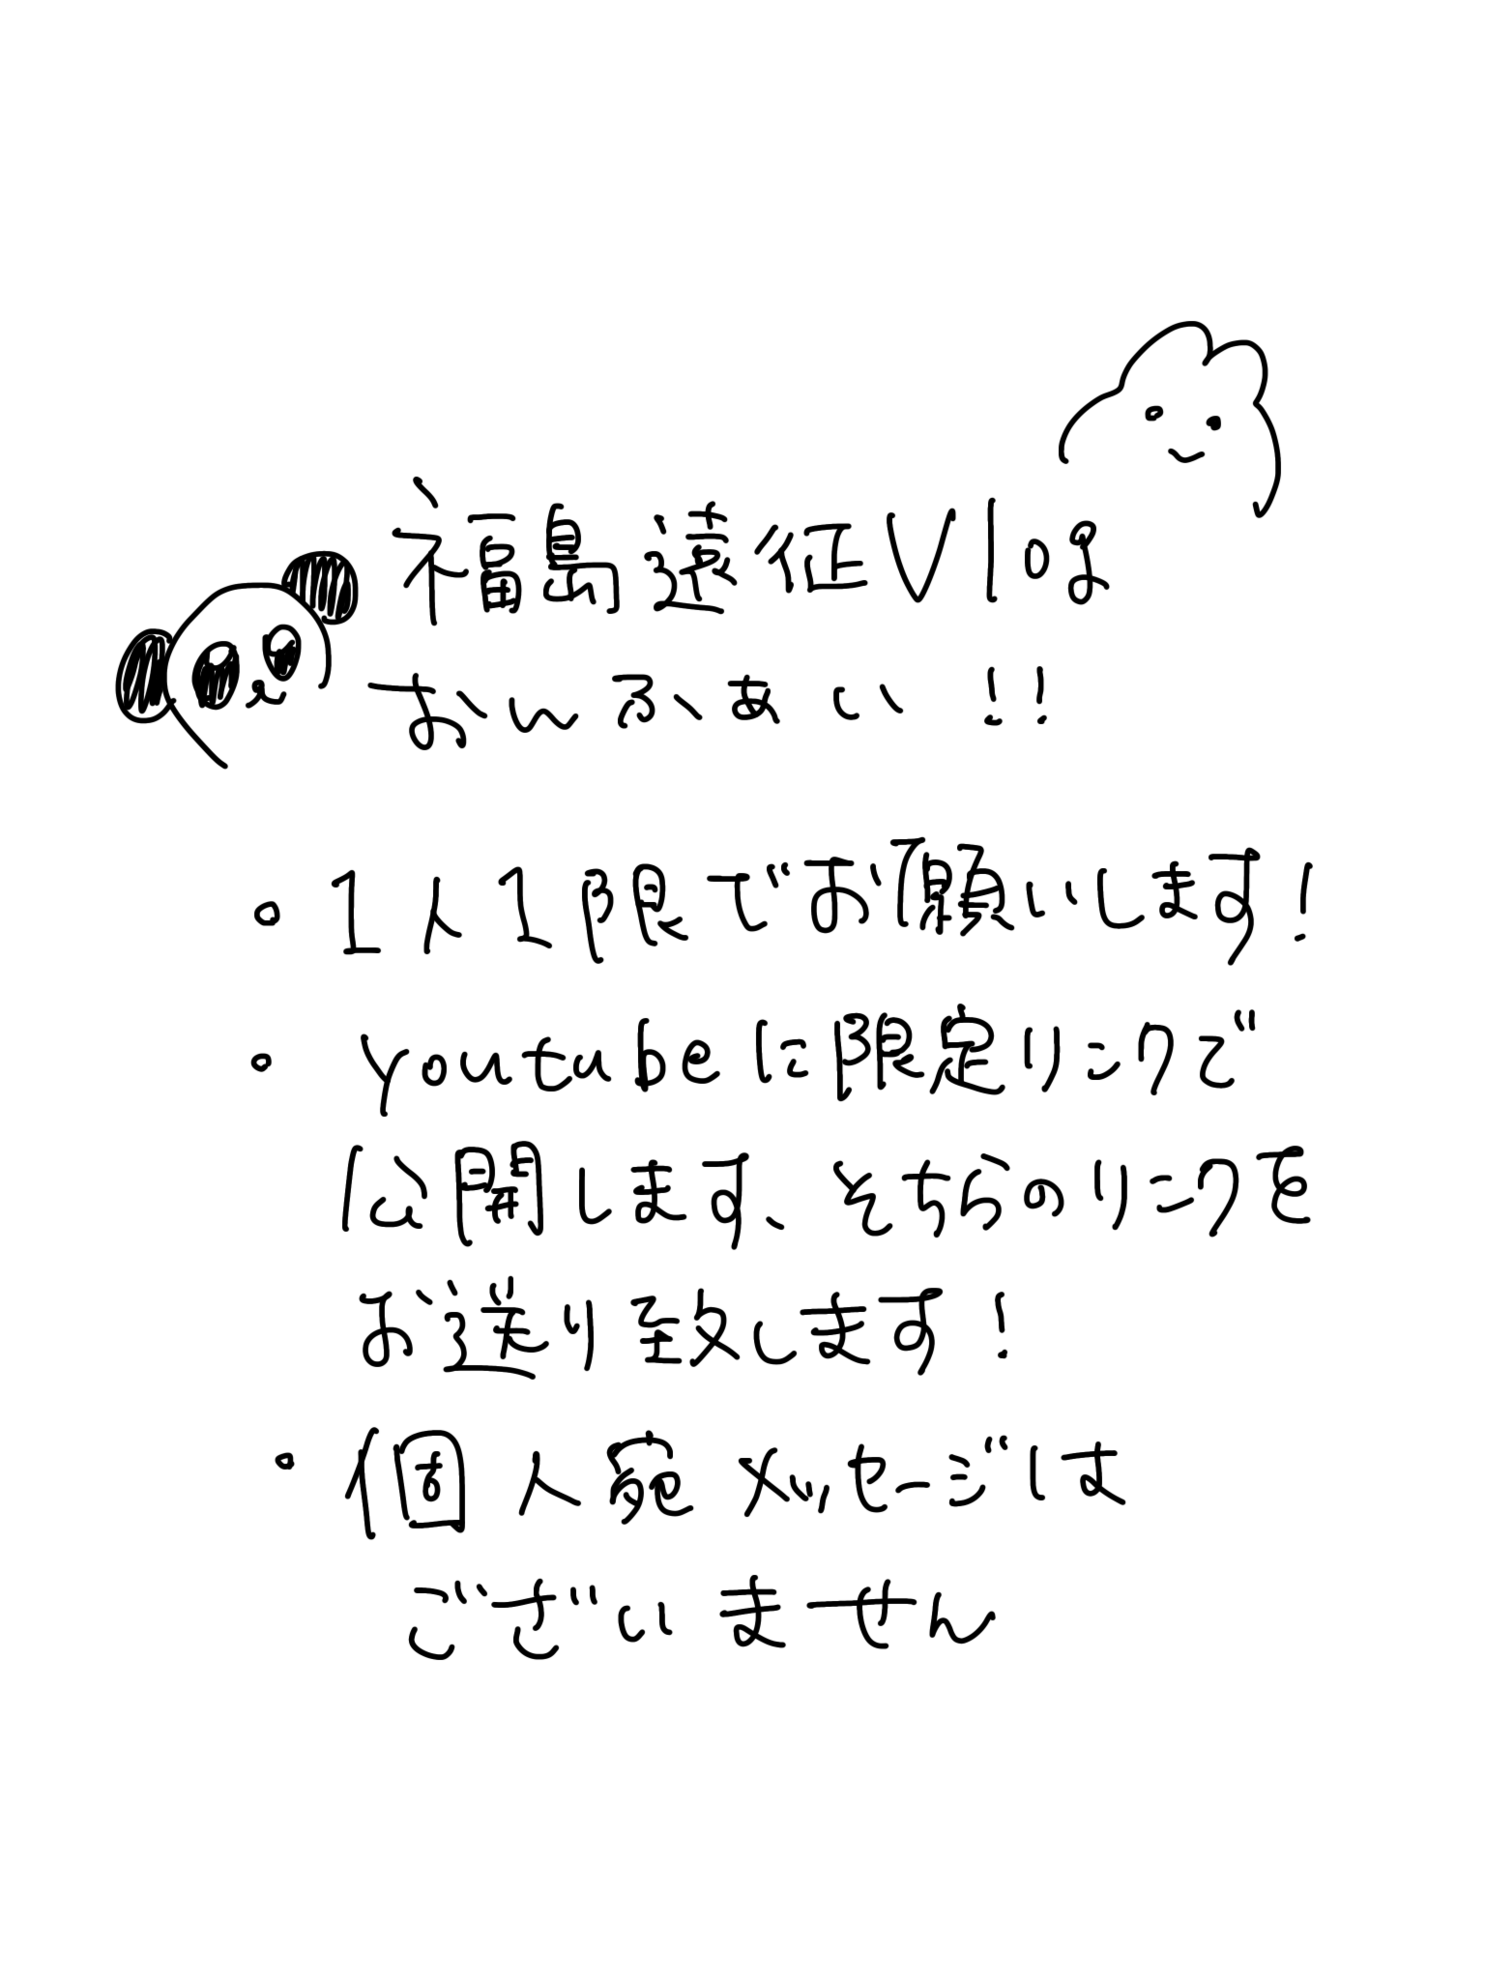 福島遠征Vlog
おんふぁい!!
・1人1限でお願いします!
・youtubeに限定リンクで
公開します、そちらのリンクを
お送り致します!
・個人宛メッセージは
ございません